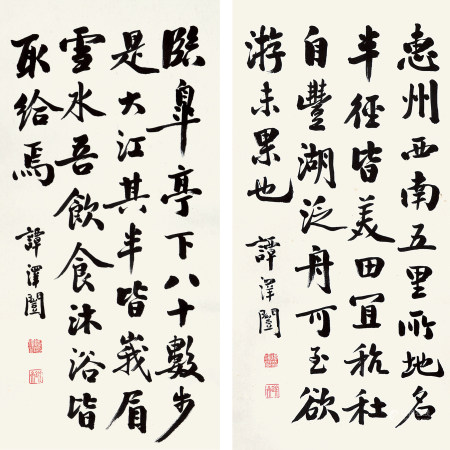 惠州西南五里所地名
半徑皆美田宜秔
自豐湖泛舟可至欲
游未果也
譚澤闓
臨皋亭下八十數步
是大江其半皆峩眉
雪水吾飲食沐浴皆
取給焉
譚澤闓